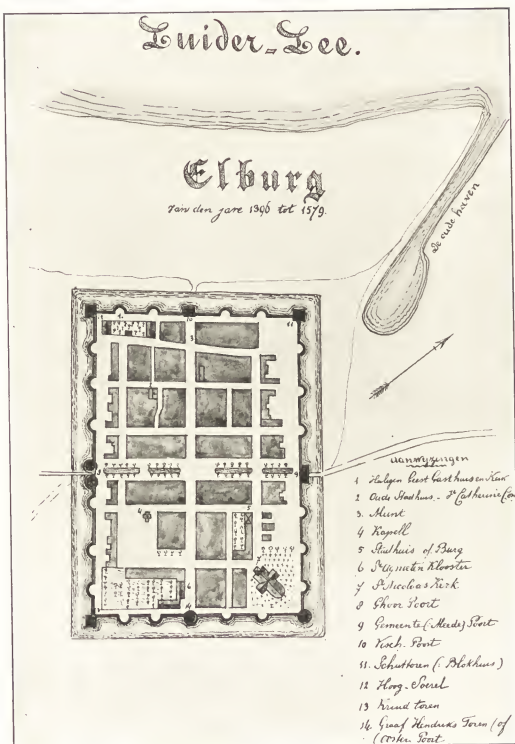 Zuider-Zee.
Elburg
Van den jare 1396 tot 1579.
De oude haven
Aanwyzingen
1 Heiligen Geest Gasthuis en Kerk
2 Oude Stadhuis - St Catherine
3. Munt
4 Kapell
5 Stadhuis of Burg
6 St Agnieten Klooster
7 St Nicolaas Kerk
8 Ghoor Poort
9 Gemeente (Meede) Poort
10 Visch-Poort
11. Schuttoren (: Blokhuis)
12 Hoog-Soerel
13 Kruid toren
14 Graaf Hendriks Toren (of
(Ooster Poort